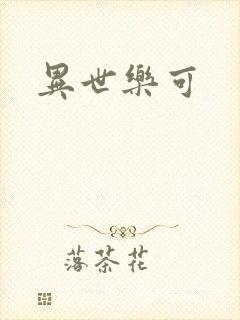 異世樂可
落茶花